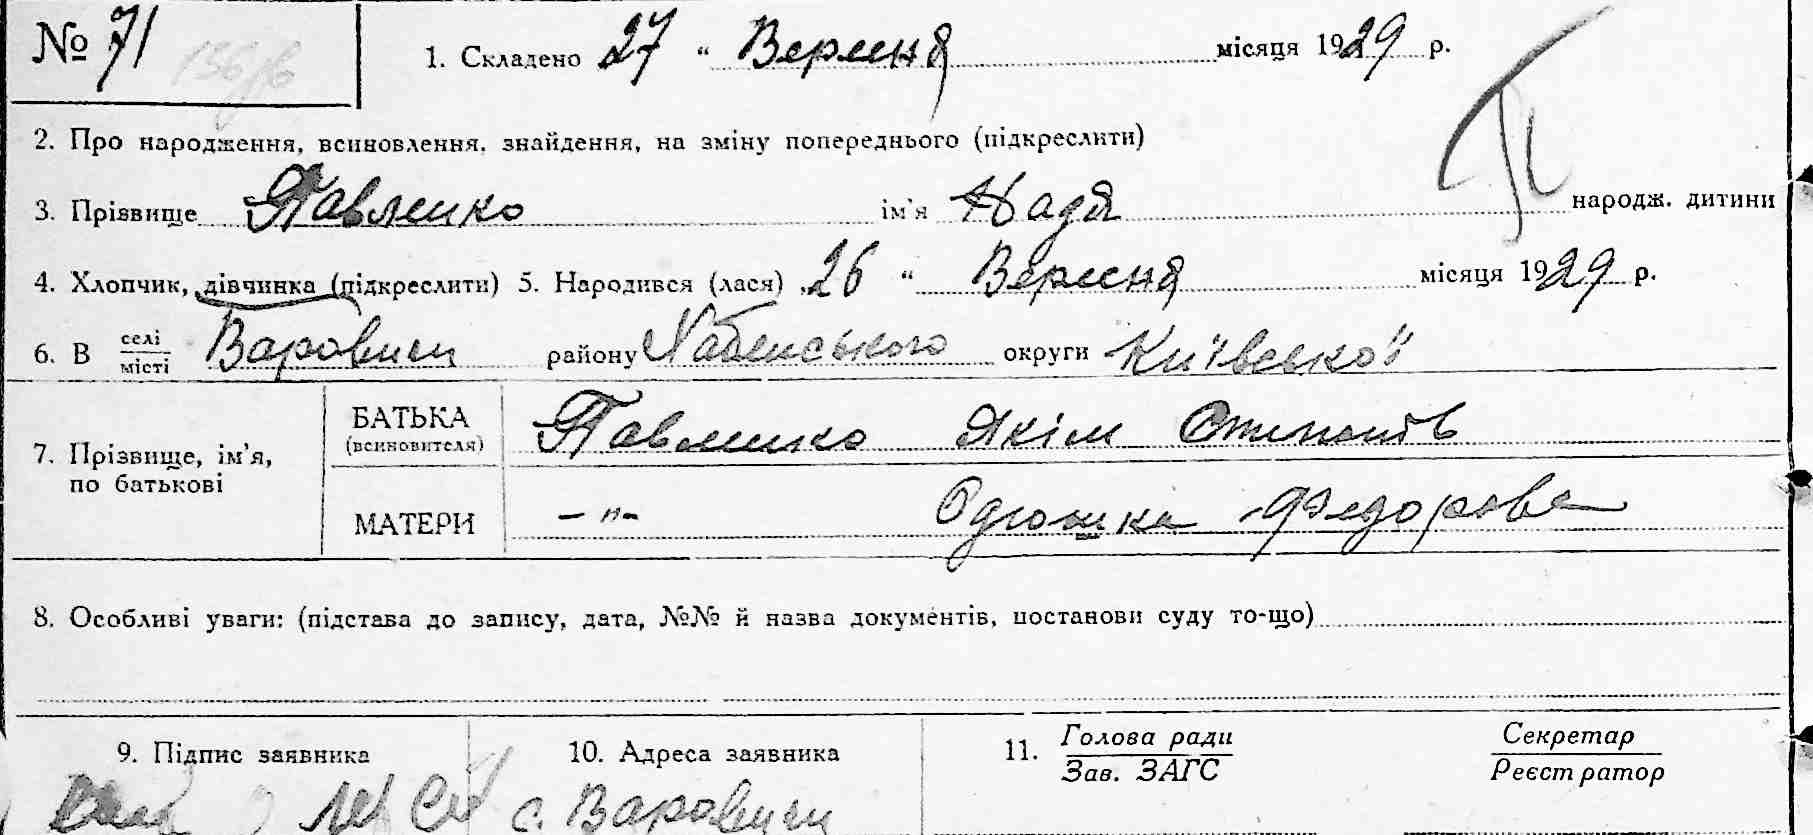 № 71 1. Складено 27 " Вересня місяця 1929 р.
2. Про народження, всиновлення, знайдення, на зміну попереднього (підкреслити)
П
3. Прізвище Павленко ім'я Надя народж. дитини
4. Хлопчик, дівчинка (підкреслити) 5. Народився (лася) 26 " Вересня місяця 1929 р.
6. В селі/місті Варовичи району Хабенського округи Київської
7. Прізвище, ім'я, по батькові
БАТЬКА (всиновителя) Павленко Якім
МАТЕРИ – "– Федорова
8. Особливі уваги: (підстава до запису, дата, №№ й назва документів, постанови суду то-що)
9. Підпис заявника 10. Адреса заявника 11. Голова ради / Зав. ЗАГС Секретар / Реєстратор
с. Варовичи